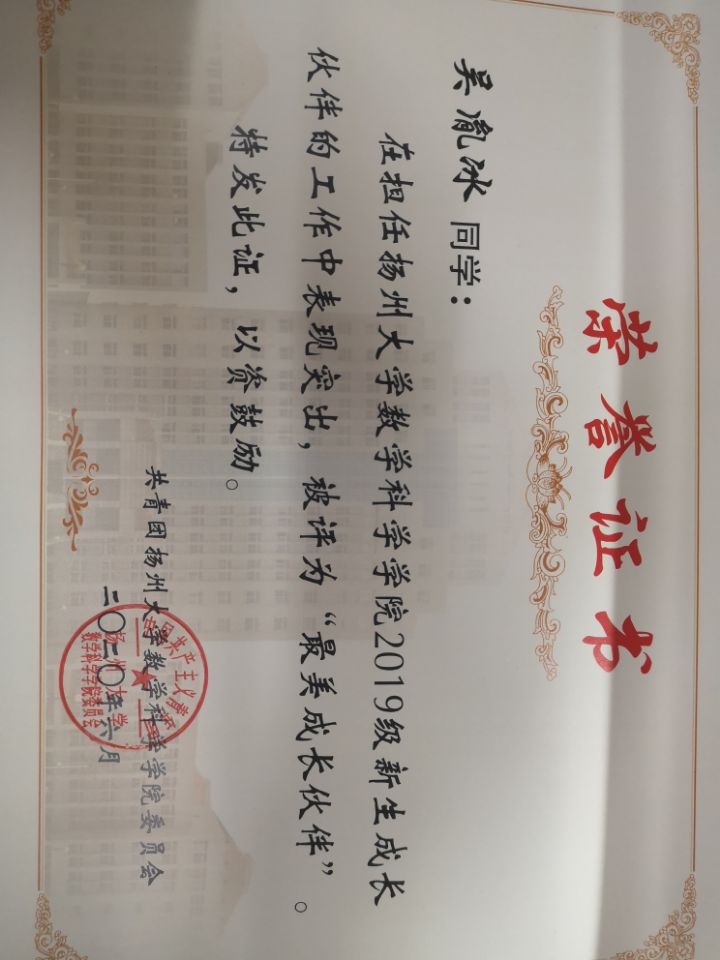 荣誉证书
吴胤冰 同学：
在担任扬州大学数学科学学院2019级新生成长
伙伴的工作中表现突出，被评为“最美成长伙伴”。
特发此证，以资鼓励。
共青团扬州大学数学科学学院委员会
二〇二〇年六月